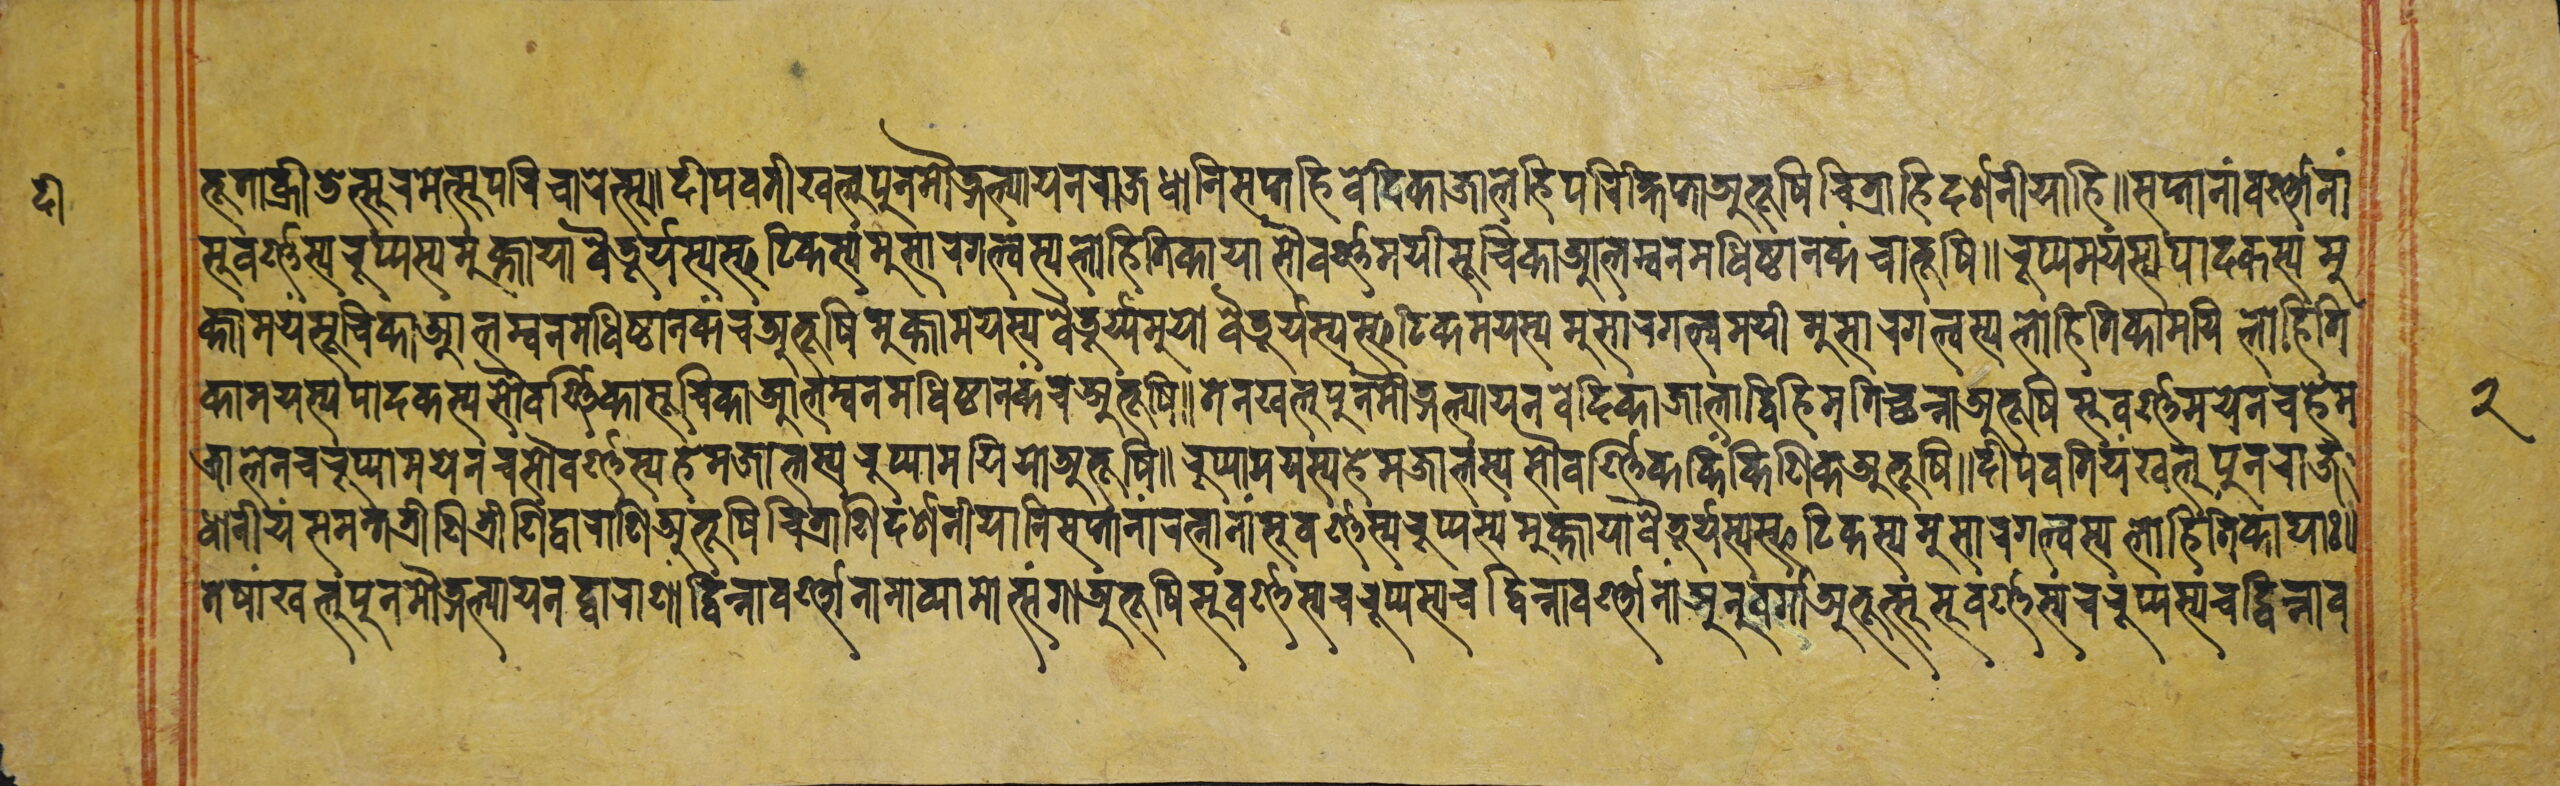 दी
तूताक्रीडेत्सुरमेत्सुपरिचारेत्सु॥दीपवतीखलुपुनमौद्गल्यायनराजधानिसप्तहिवेदिकाजालेहिपरिक्षिप्ताअभूषिचित्राहिदर्शनीयाहि॥सप्तानांवर्ण्णानां
सुवर्ण्णस्यरूप्यस्यमुक्तायावैडूर्यस्यस्फटिकस्यमुसारगल्वस्यलोहितिकाया सौवर्ण्णमयीसूचिकाआलम्बनमधिष्ठानकंचाभूषि॥रूप्यमयस्यपादकस्य मु
क्तामयंसूचिकाआलम्बनमधिष्ठानकंचअभूषि मुक्तामयस्यवैडूर्य्यमुयो वैडूर्यस्यस्फटिकमयस्य मुसारगल्वमयी मुसारगल्वस्यलोहितिकामयि लोहिति
कामयस्यपादकस्यसौवर्ण्णिकासूचिकाआलम्बनमधिष्ठानकंचअभूषि॥तेनखलुपुनमौद्गल्यायनवेदिकाजालाद्विहिमतिच्छन्नाअभूषि सुवर्ण्णमयेनचहेम
जालेनचरूप्यामयेनचसौवर्ण्णस्यहेमजालस्यरूप्यामयियोअभूषि॥रूप्यामयस्यहेमजालस्यसौवर्ण्णिककिंकिणिकअभूषि॥दीपवतियंखलुपुनराज
धानीयंसमन्तत्रीणित्रीणिद्वाराणिअभूषिचित्राणिदर्शनीयानिसप्तानांरत्नानांसुवर्ण्णस्यरूप्यस्यमुक्तायावैडूर्यस्यस्फटिकस्यमुसारगल्वस्यलोहितिकायाः॥
तेषांखलुपुनमौद्गल्यायनद्वाराणांद्विन्नावर्ण्णानामाव्यामोत्संगाअभूषिसुवर्ण्णस्यचरूप्यस्यचद्विन्नावर्ण्णानांअनुवर्गाअभूत्सुसुवर्ण्णस्यचरूप्यस्यचद्विन्नाव
२